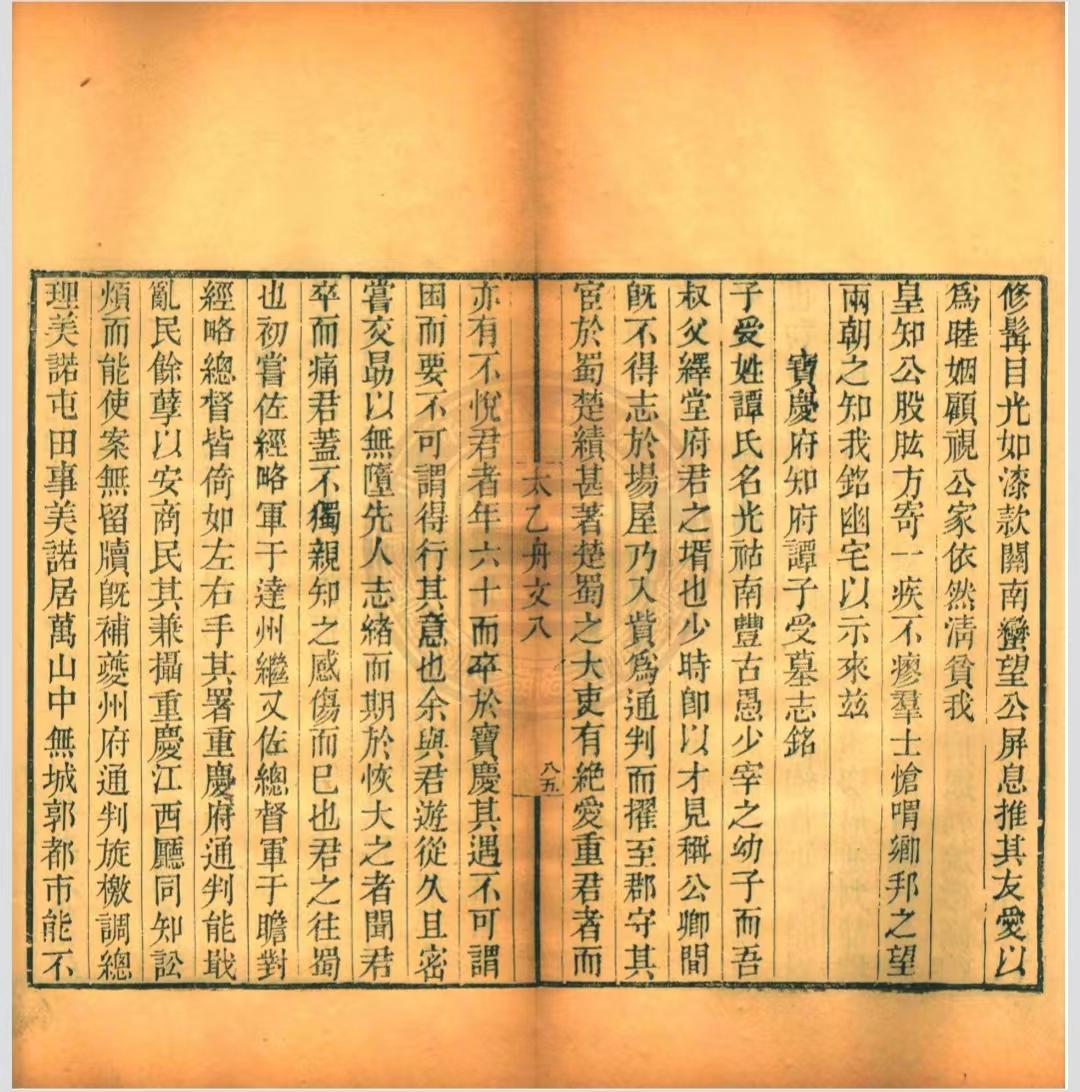 修髯目光如漆款關南蠻望公屏息推其友愛以
爲睦婣顧視公家依然淸貧我
皇知公股肱方寄一疾不瘳羣士愴喟鄉邦之望
兩朝之知我銘幽宅以示來玆
寶慶府知府譚子受墓志銘
子受姓譚氏名光祜南豐古愚少宰之幼子而吾
叔父繹堂府君之壻也少時卽以才見稱公卿間
旣不得志於場屋乃入貲爲通判而擢至郡守其
宦於蜀楚績甚著楚蜀之大吏有絶愛重君者而
太乙舟文八
八五
亦有不悅君者年六十而卒於寶慶其遇不可謂
困而要不可謂得行其意也余與君遊從久且密
嘗交勗以無墮先人志緖而期於恢大之者聞君
卒而痛君蓋不獨親知之感傷而已也君之往蜀
也初嘗佐經略軍于達州繼又佐總督軍于瞻對
經略總督皆倚如左右手其署重慶府通判能戢
亂民餘孽以安商民其兼攝重慶江西廳同知訟
煩而能使案無留牘旣補夔州府通判旋檄調總
理美諾屯田事美諾居萬山中無城郭都市能不